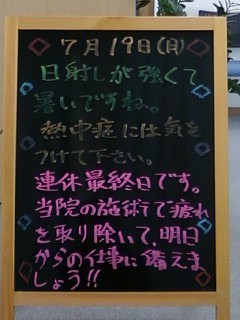 7月19日(月)
日射しが強くて
暑いですね。
熱中症には気を
つけて下さい。
連休最終日です。
当院の施術で疲れ
を取り除いて、明日
からの仕事に備えま
しょう!!